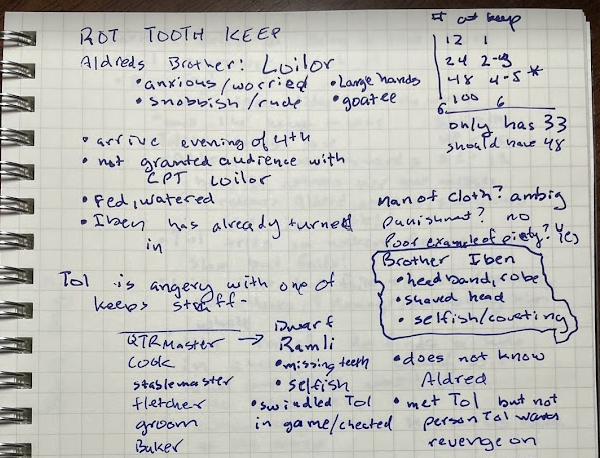 ROT TOOTH KEEP
Aldreds Brother: Loilor
• anxious/worried • Large hands
• snobbish/rude • goatee
# at keep
12 1
24 2-3
48 4-5 *
100 6
6
only has 33
should have 48
• arrive evening of 4th
• not granted audience with
CPT Loilor
• Fed, watered
• Iben has already turned
in
Man of cloth? ambig
punishment? no
Poor example of piety? yes
Brother Iben
• headband, robe
• shaved head
• selfish/coveting
Tol is angery with one of
keeps staff-
QTRMaster →
cook
stablemaster
fletcher
groom
Baker
Dwarf
Ramli
• missing teeth
• selfish
• swindled Tol
in game/cheated
• does not know
Aldred
• met Tol but not
person Tol wants
revenge on